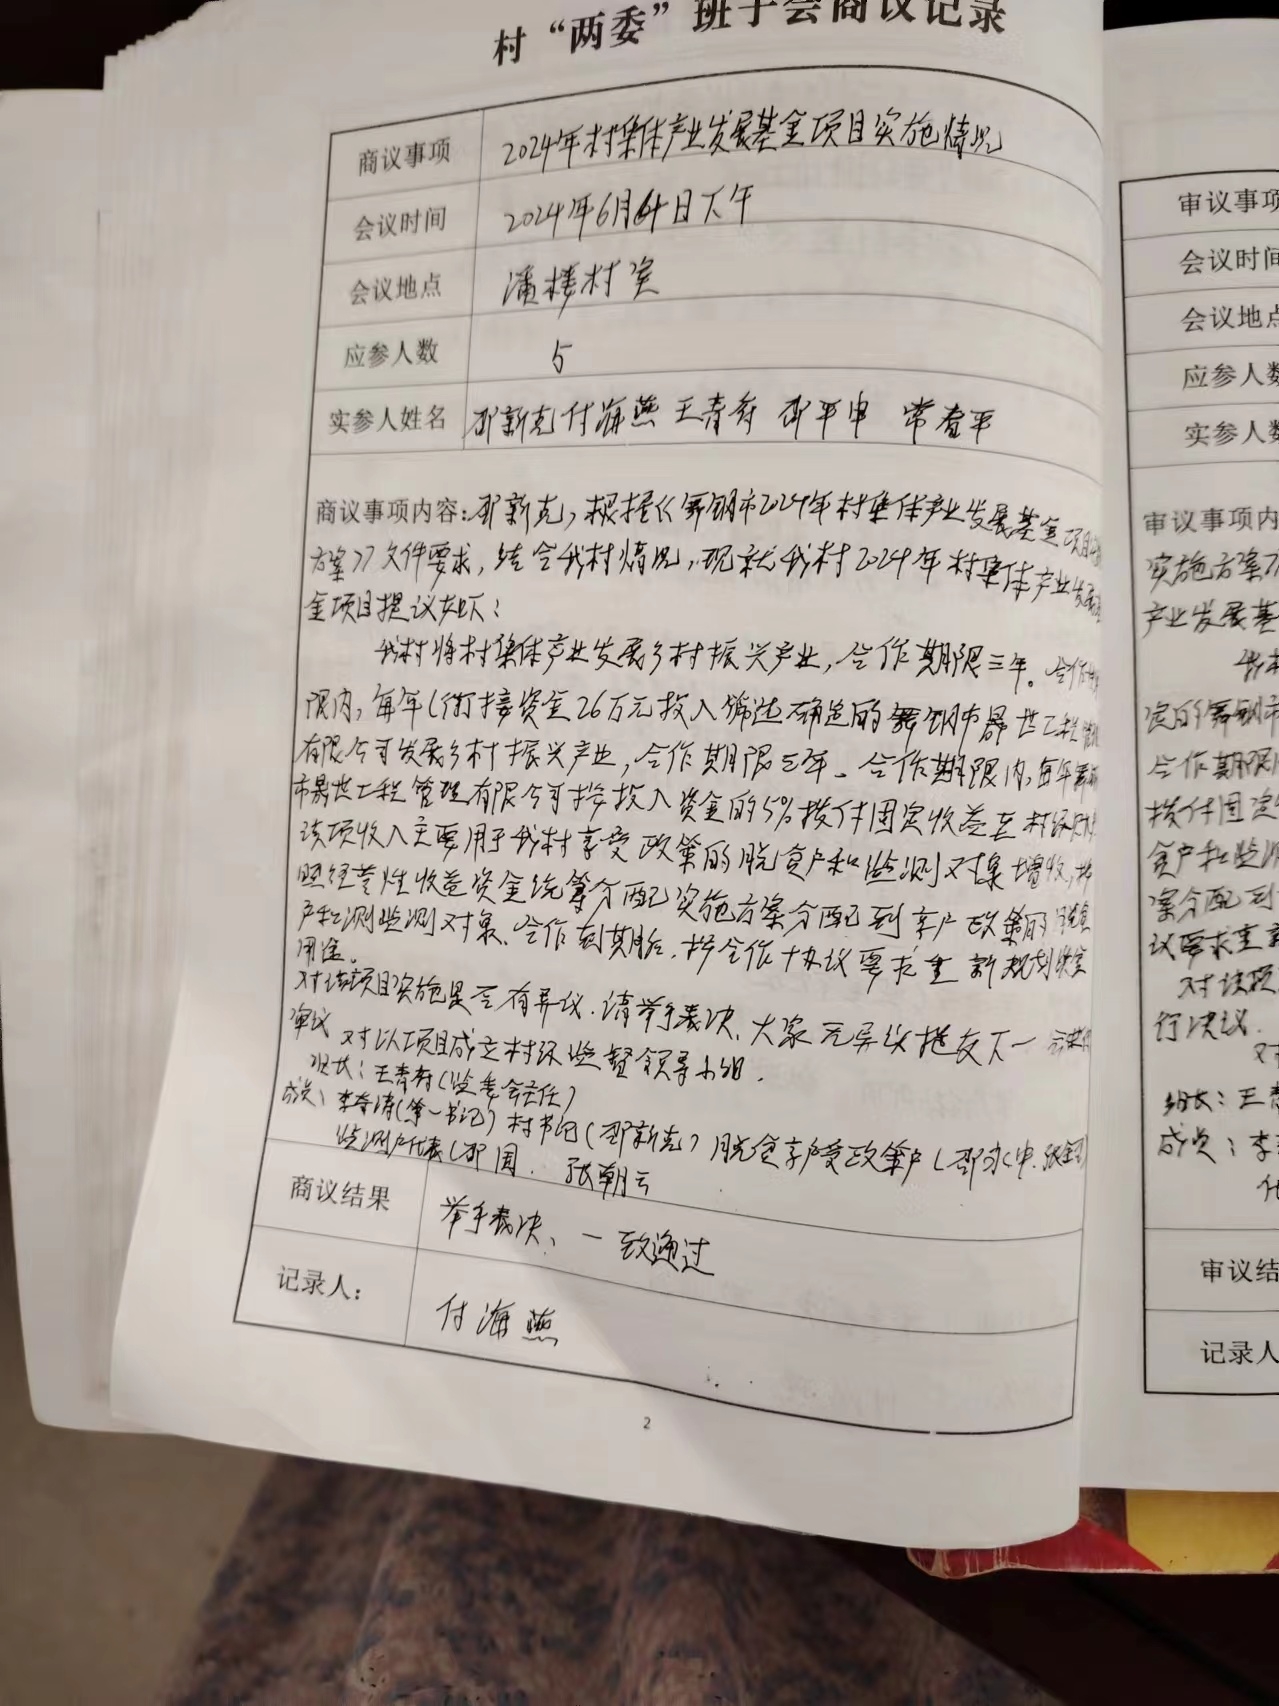 村“两委”班子会商议记录
商议事项 2024年村集体产业发展基金项目实施情况
会议时间 2024年6月4日下午
会议地点 潘楼村室
应参人数 5
实参人姓名 邵新克 付海燕 王青有 邵平申 常春平
商议事项内容：邵新克，根据《舞钢市2024年村集体产业发展基金项目
方案》文件要求，结合我村情况，现就我村2024年村集体产业发展
金项目提议如下：
我村将村集体产业发展乡村振兴产业，合作期限三年。合作
限内，每年衔接资金26万元投入筛选确定的舞钢市晨世工程管理
有限公司发展乡村振兴产业，合作期限三年。合作期限内，每年舞钢
市晨世工程管理有限公司按投入资金的5%拨付固定收益至村
该项收入主要用于我村享受政策的脱贫户和监测对象增收，按
照经营性收益资金统筹分配实施方案分配到享户政策的脱贫
户和测监测对象。合作到期后，按合作协议要求重新规划
用途。
对该项目实施是否有异议，请举手表决，大家无异议提交下一
审议 对以项目成立村级监督领导小组。
组长：王青有（监委会主任）
成员：李春涛（第一书记）村书记（邵新克）脱贫享受政策户（邵永中
监测户代表（邵国 张朝云
商议结果 举手表决、一致通过
记录人： 付海燕
2
审议事项
会议时间
会议地点
应参人数
实参人数
审议事项内
实施方案
产业发展基
我
定的舞钢市
合作期限
拨付固定
贫户和监测
案分配到
议要求重新
对该项
行决议.
对
组长：王青
成员：李
代
审议结
记录人